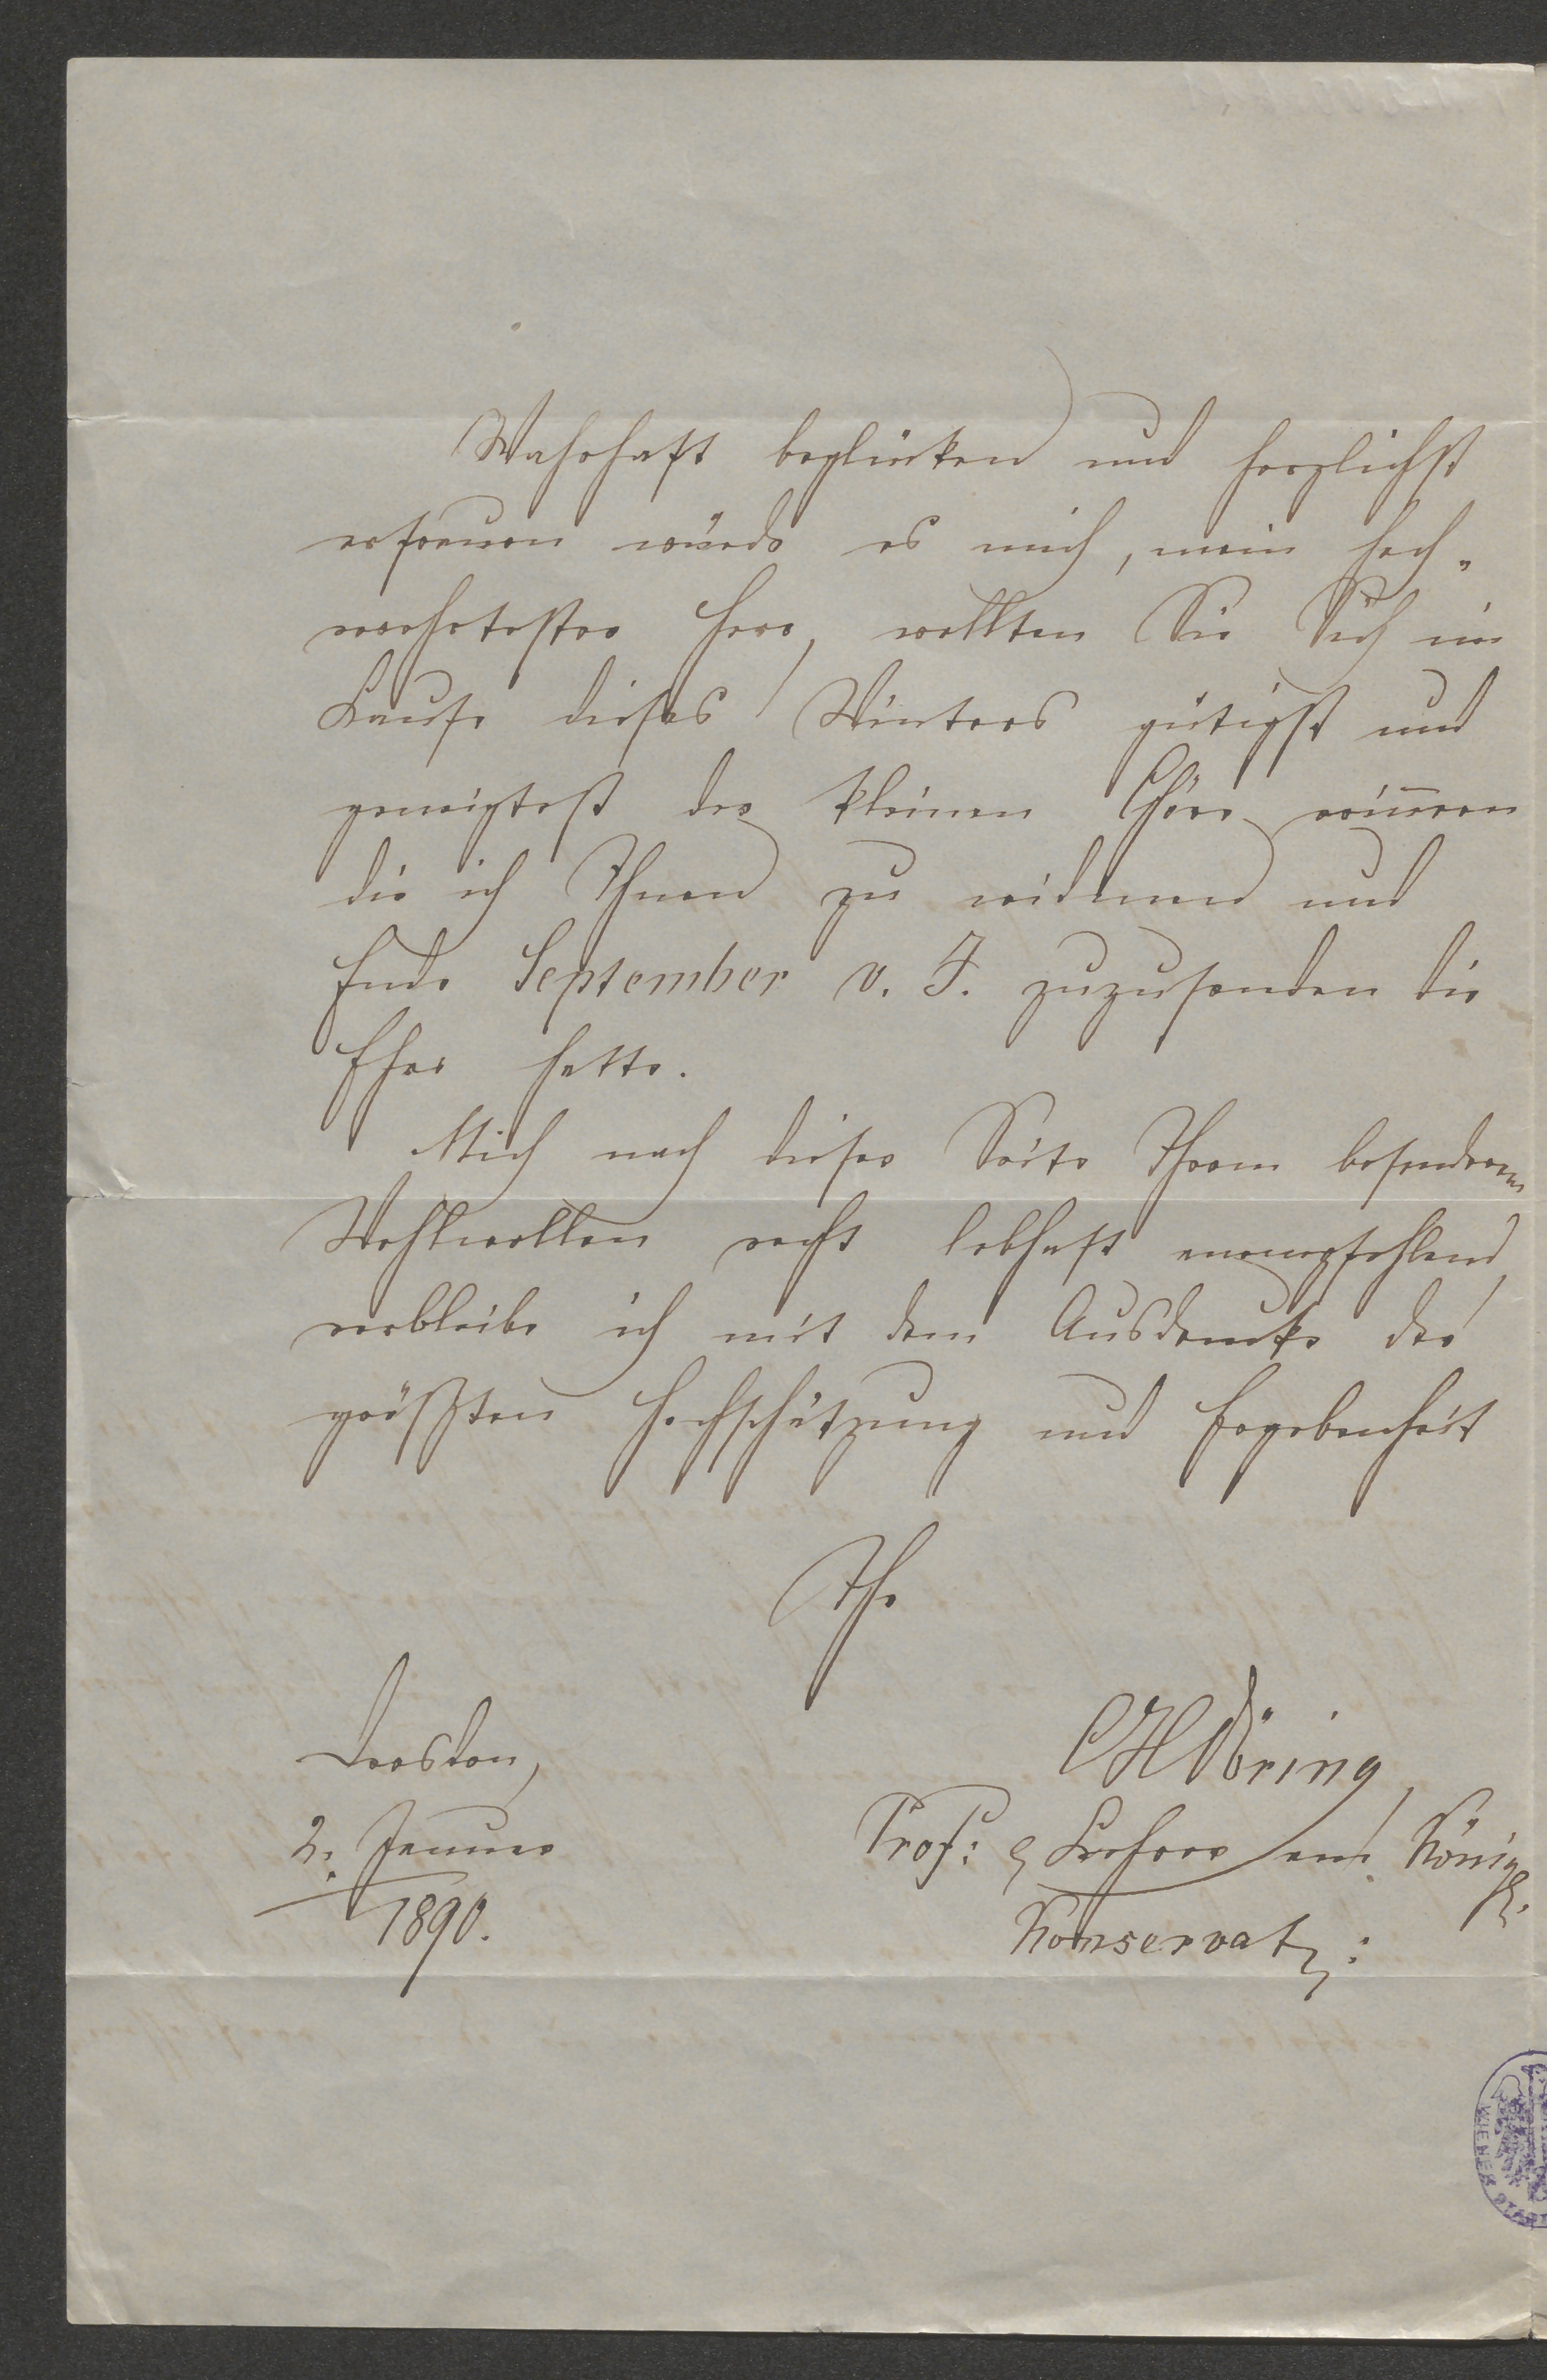 Wahrhaft beglücken und herzlichst
erfreuen würde es mich, mein hoch-
verehrtester Herr, wollten Sie Sich im
Laufe dieses Winters gütigst und
geneigtest der kleinen Chöre erinnern
die ich Ihnen zu widmen und
Ende September v. J. zuzusenden die
Ehre hatte.
Mich nach dieser Seite Ihrem besonderen
Wohlwollen recht lebhaft anempfehlend,
verbleibe ich mit dem Ausdrucke der
größten Hochschätzung und Ergebenheit
Ihr
Dresden,
CHDöring,
2. Januar
Prof: & Lehrer am Königl.
1890.
Konservat:
WIENER